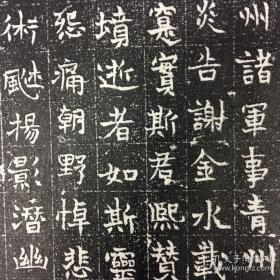 州諸軍事青
炎告謝金水載
寔實斯君熙賛
墳逝者如斯靈
怨痛朝野悼悲
術揚影潛幽